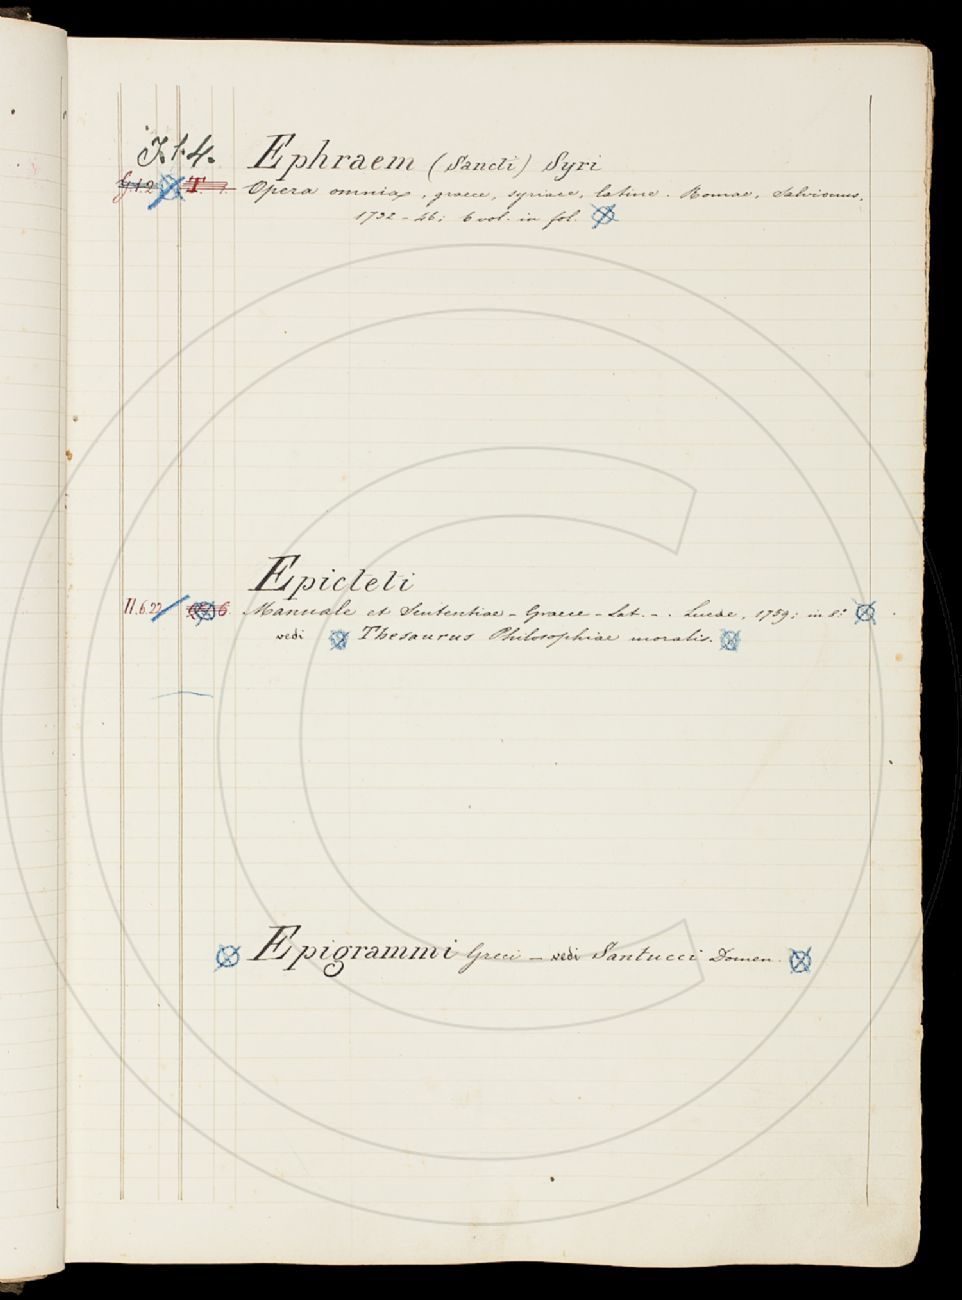 J.1.4. Ephraem (Sancti) Syri
G.1.2 T. Opera omnia, graece, syriace, latine. Romae, Salvionus,
1732-46; 6 vol. in fol.
Epicteti
II.6.22 6. Manuale et Sententiae - Graece - Lat. - . Lucae, 1759; in 8º
vedi Thesaurus Philosophiae moralis.
Epigrammi Greci - vedi Santucci Domen.